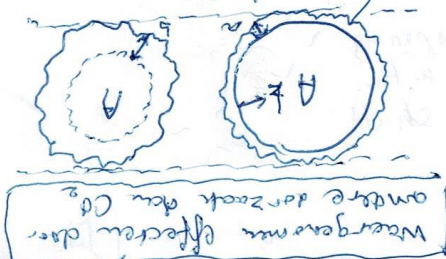 Waargenomen effecten door
andere oorzaak dan CO2
A
A